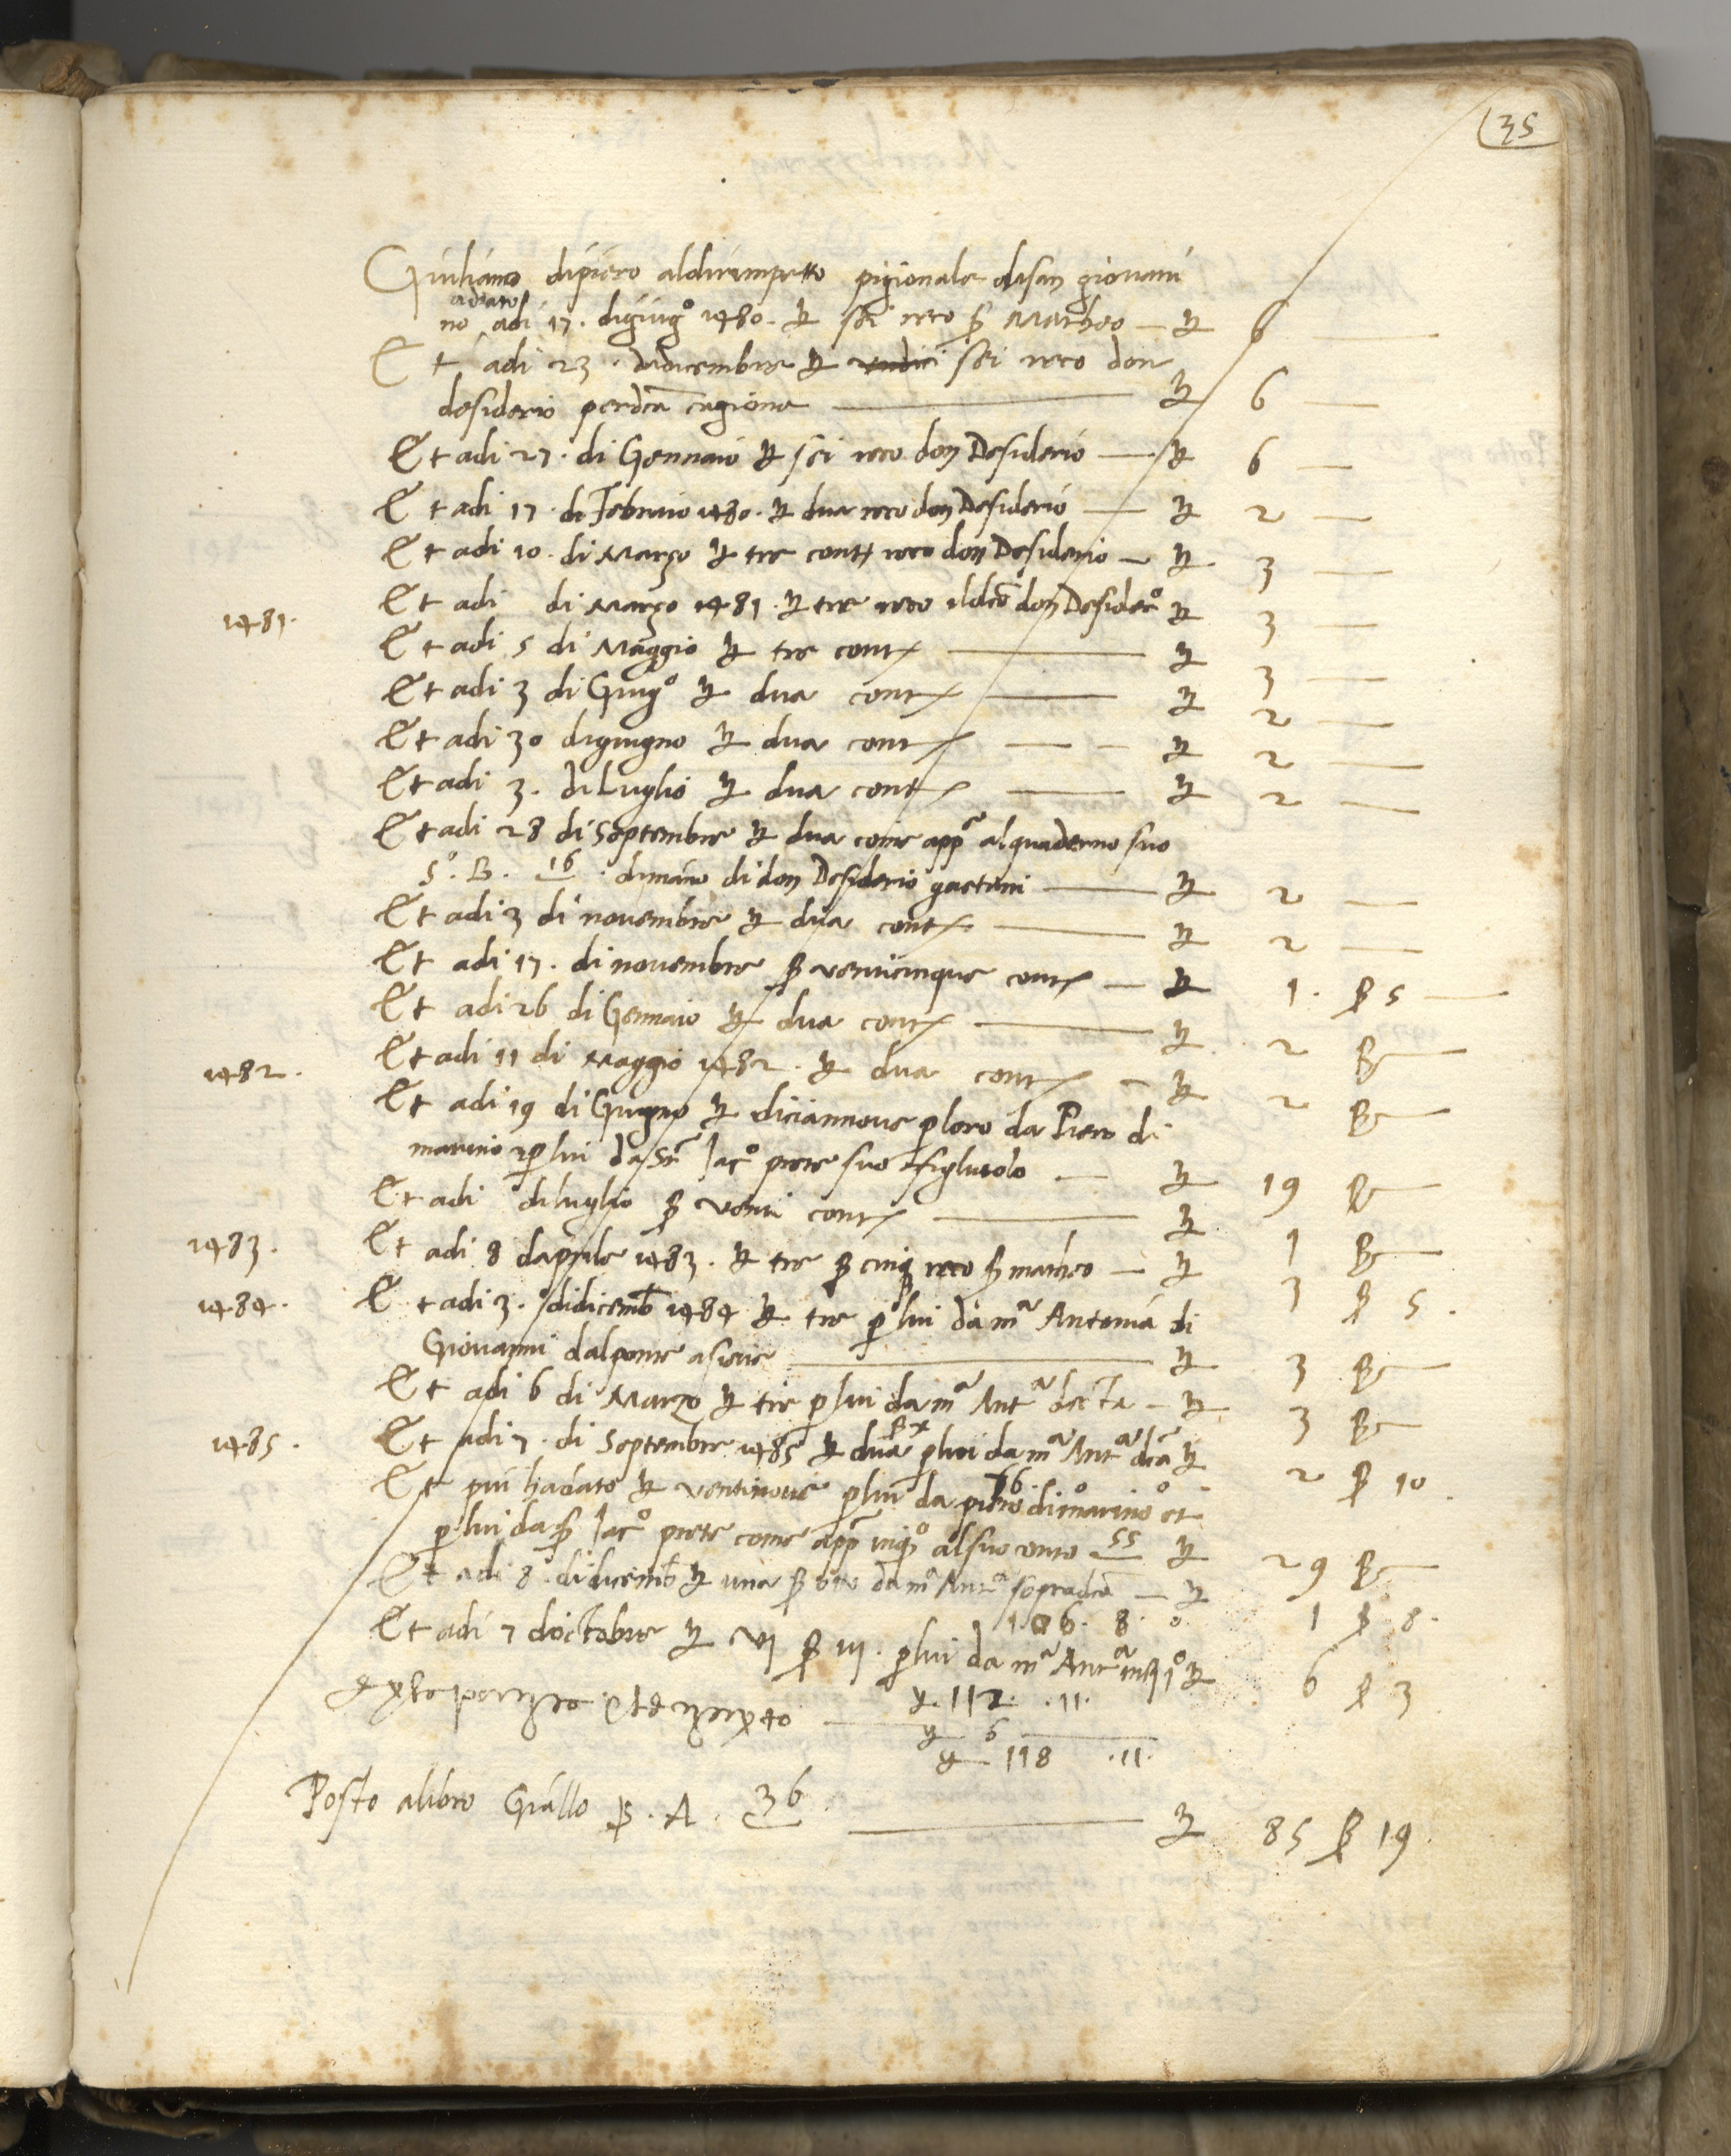 35
Giuliano dipiero aldirimpetto pigionale disan giovani
adato
no adi 17. digiugº 1480. ₶ sei reco ẞ Matheo — ₶ 6 —
Et adi 23. didicembre ₶ sei reco don
desiderio perdcā cagione — ₶ 6 —
Et adi 27. di Gennaio ₶ sei reco don Desiderio — ₶ 6 —
Et adi 17. di Febraio 1480. ₶ dua reco don Desiderio — ₶ 2 —
Et adi 10. di Marzo ₶ tre contt reco don Desiderio — ₶ 3 —
1481. Et adi di Marzo 1481. ₶ tre reco ildcō don Desiderº ₶ 3 —
Et adi 5 di Maggio ₶ tre contt — ₶ 3 —
Et adi 3 di Giugº ₶ dua contt — ₶ 2 —
Et adi 30 digiugno ₶ dua contt — ₶ 2 —
Et adi 3. di Luglio ₶ dua contt — ₶ 2 —
Et adi 28 di Septembre ₶ dua come appᵉ alquaderno suo
Sº. B. 16. dimano di don Desiderio gaetani — ₶ 2 —
Et adi 3 di novembre ₶ dua contt — ₶ 2 —
Et adi 17. di novembre ẞ venticinque contt — ₶ 1. ẞ 5 —
Et adi 26 di Gennaio ₶ dua contt — ₶ 2 ẞ —
1482. Et adi 11 di Maggio 1482. ₶ dua contt — ₶ 2 ẞ —
Et adi 19 di Giugno ₶ diciannove ploro da Piero di
marino plui da Jacº prete suo figluolo — ₶ 19 ẞ —
Et adi diluglio ẞ venti contt — ₶ 1 ẞ —
1483. Et adi 8 daprile 1483. ₶ tre ẞ cinq reco ẞ matheo — ₶ 3 ẞ 5.
1484. Et adi 3. didicemb 1484 ₶ tre plui da mᵃ Antonia di
Giovanni dalponte asieve — ₶ 3 ẞ —
Et adi 6 di Marzo ₶ tre plui da mᵃ Antᵃ decta — ₶ 3 ẞ —
ẞ x
1485. Et adi 7. di Septembre 1485 ₶ dua plui da mᵃ Antᵃ dcā ₶ 2 ẞ 10.
Et piu hadato ₶ ventinove plui da piero dimarino et
plui da Jacº prete come app alsuo conto 55 ₶ 29 ẞ —
Et adi 8. didicemb ₶ una ẞ otto da mᵃ Antᵃ sopradcā — ₶ 1 ẞ 8.
106. 8. 0
Et adi 7 doctobre ₶ vi ẞ iii. plui da mᵃ Antᵃ ₶ 6 ẞ 3
₶. 112. .11.
₶ 6
₶ 118 .11.
Posto alibro Giallo ẞ. A. 36. — ₶ 85 ẞ 19.